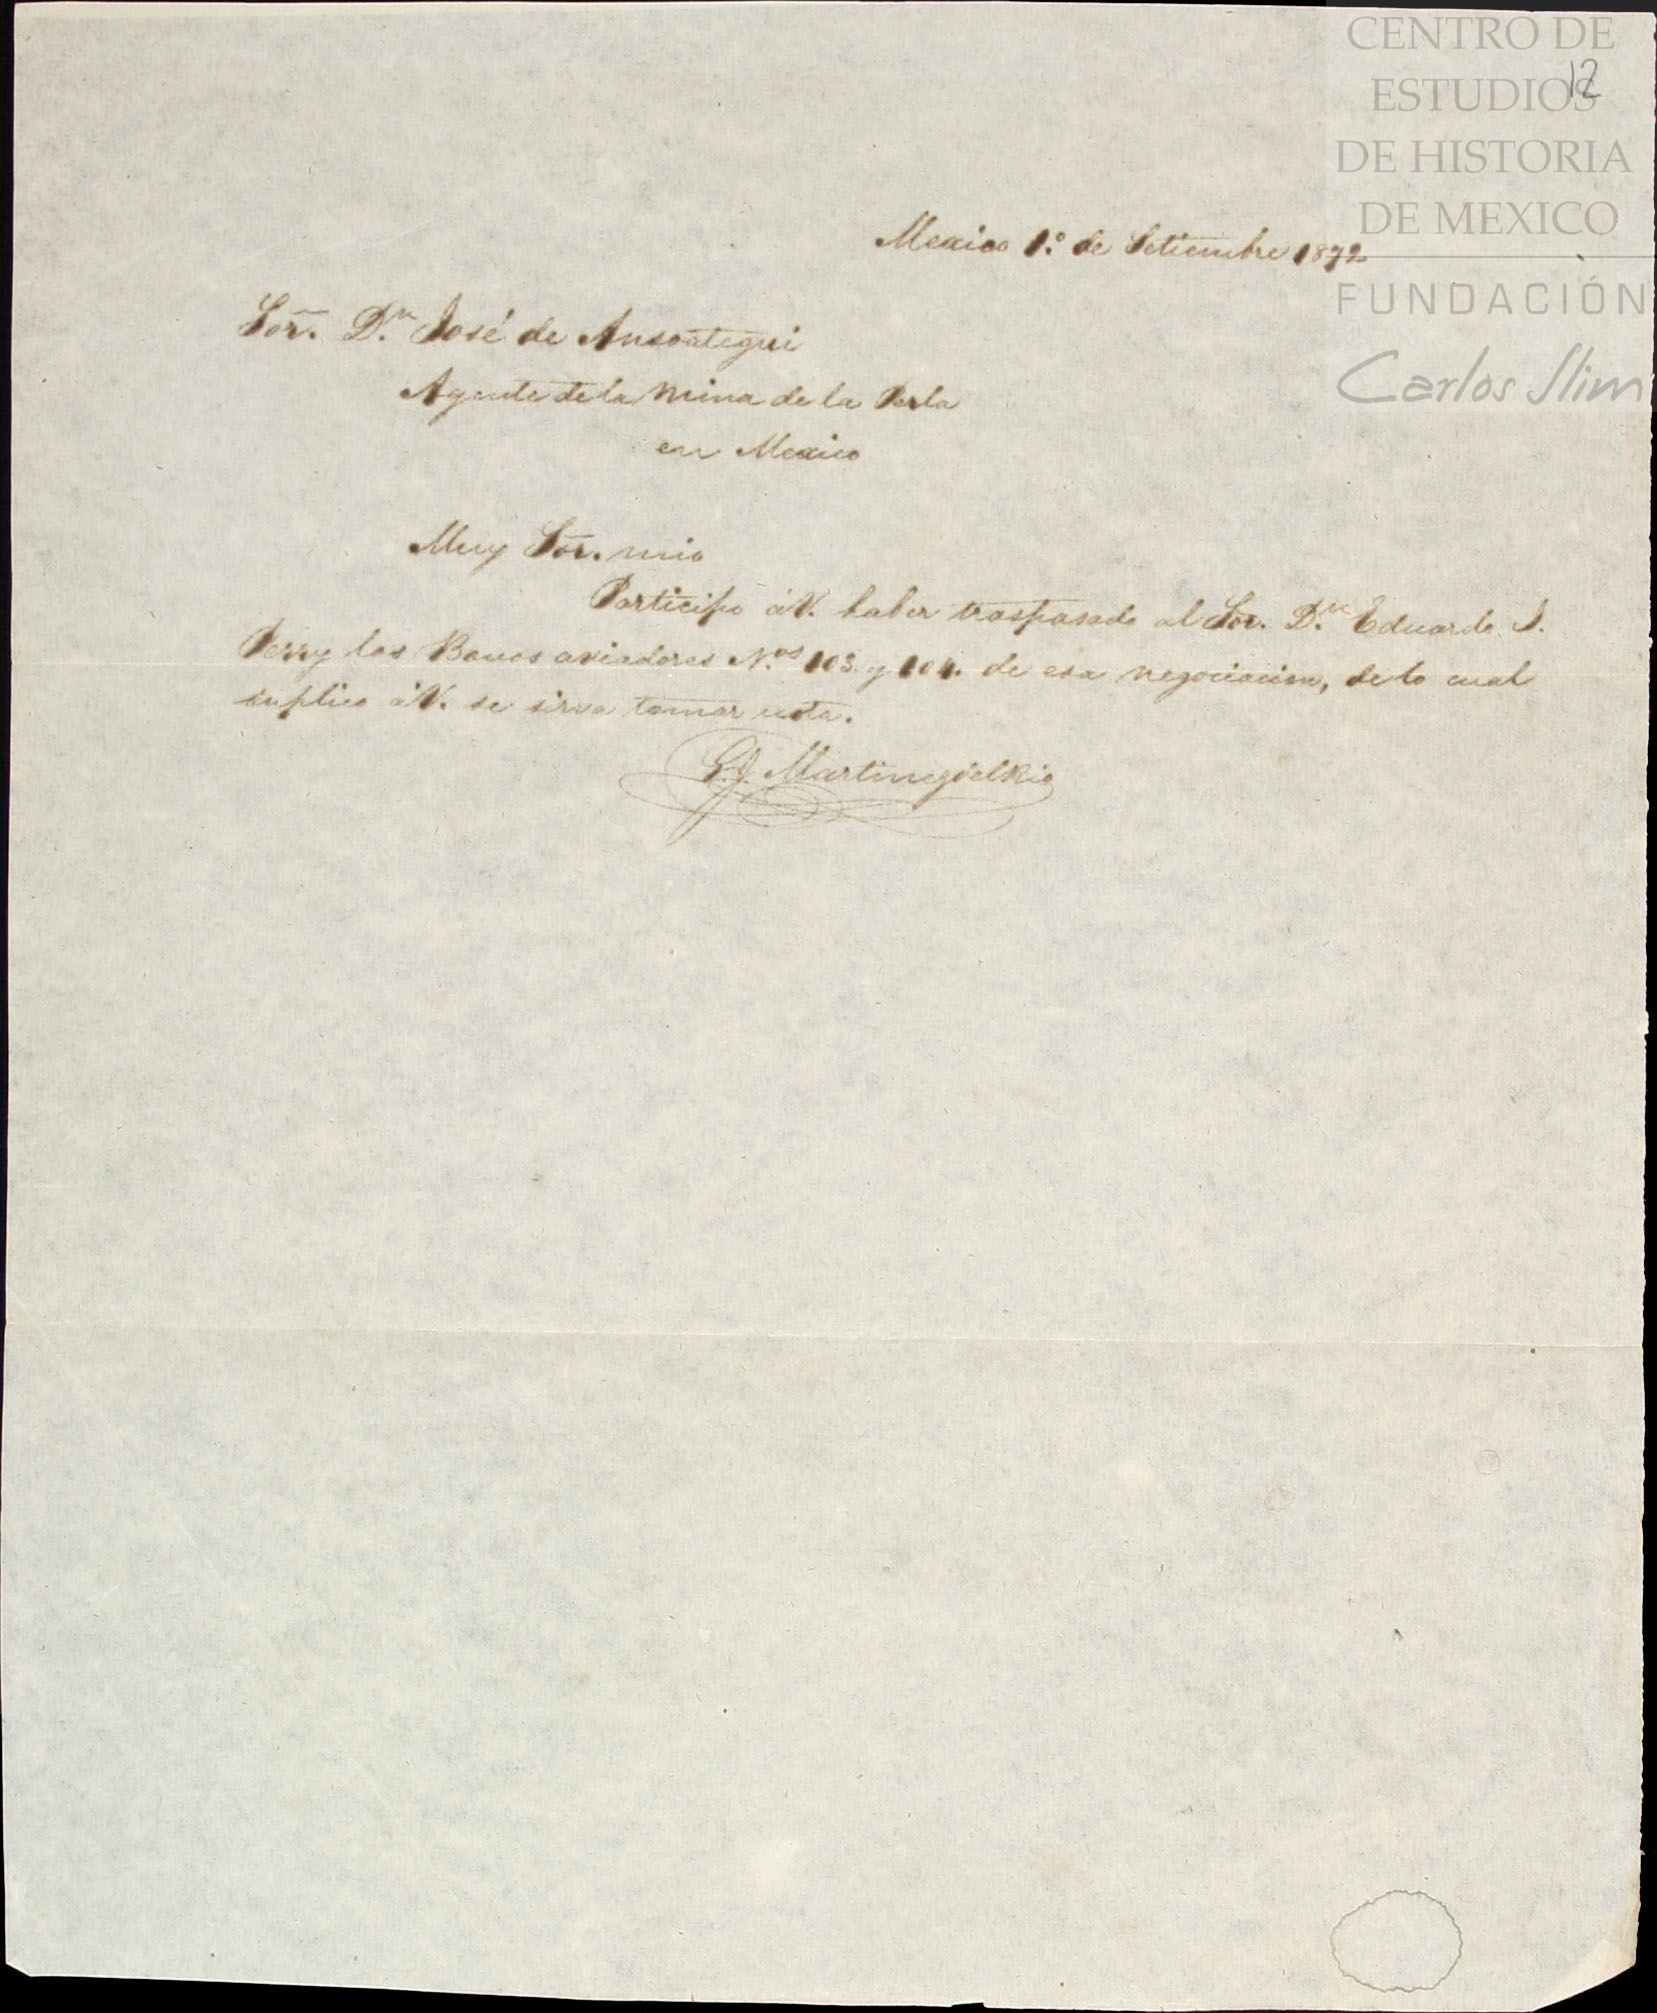 CENTRO DE
ESTUDIOS
DE HISTORIA
DE MEXICO
FUNDACIÓN
Carlos Slim
12
Mexico 1.º de Setiembre 1872
Sor. D.n José de Ansoategui
Agente de la Mina de la Perla
en Mexico
Muy Sor. mio
Participo á V. haber traspasado al Sor. D.n Eduardo J.
Perry los Bonos aviadores N.os 103. y 104. de esa negociacion, de lo cual
suplico á V. se sirva tomar nota.
G. J. Martinez del Rio